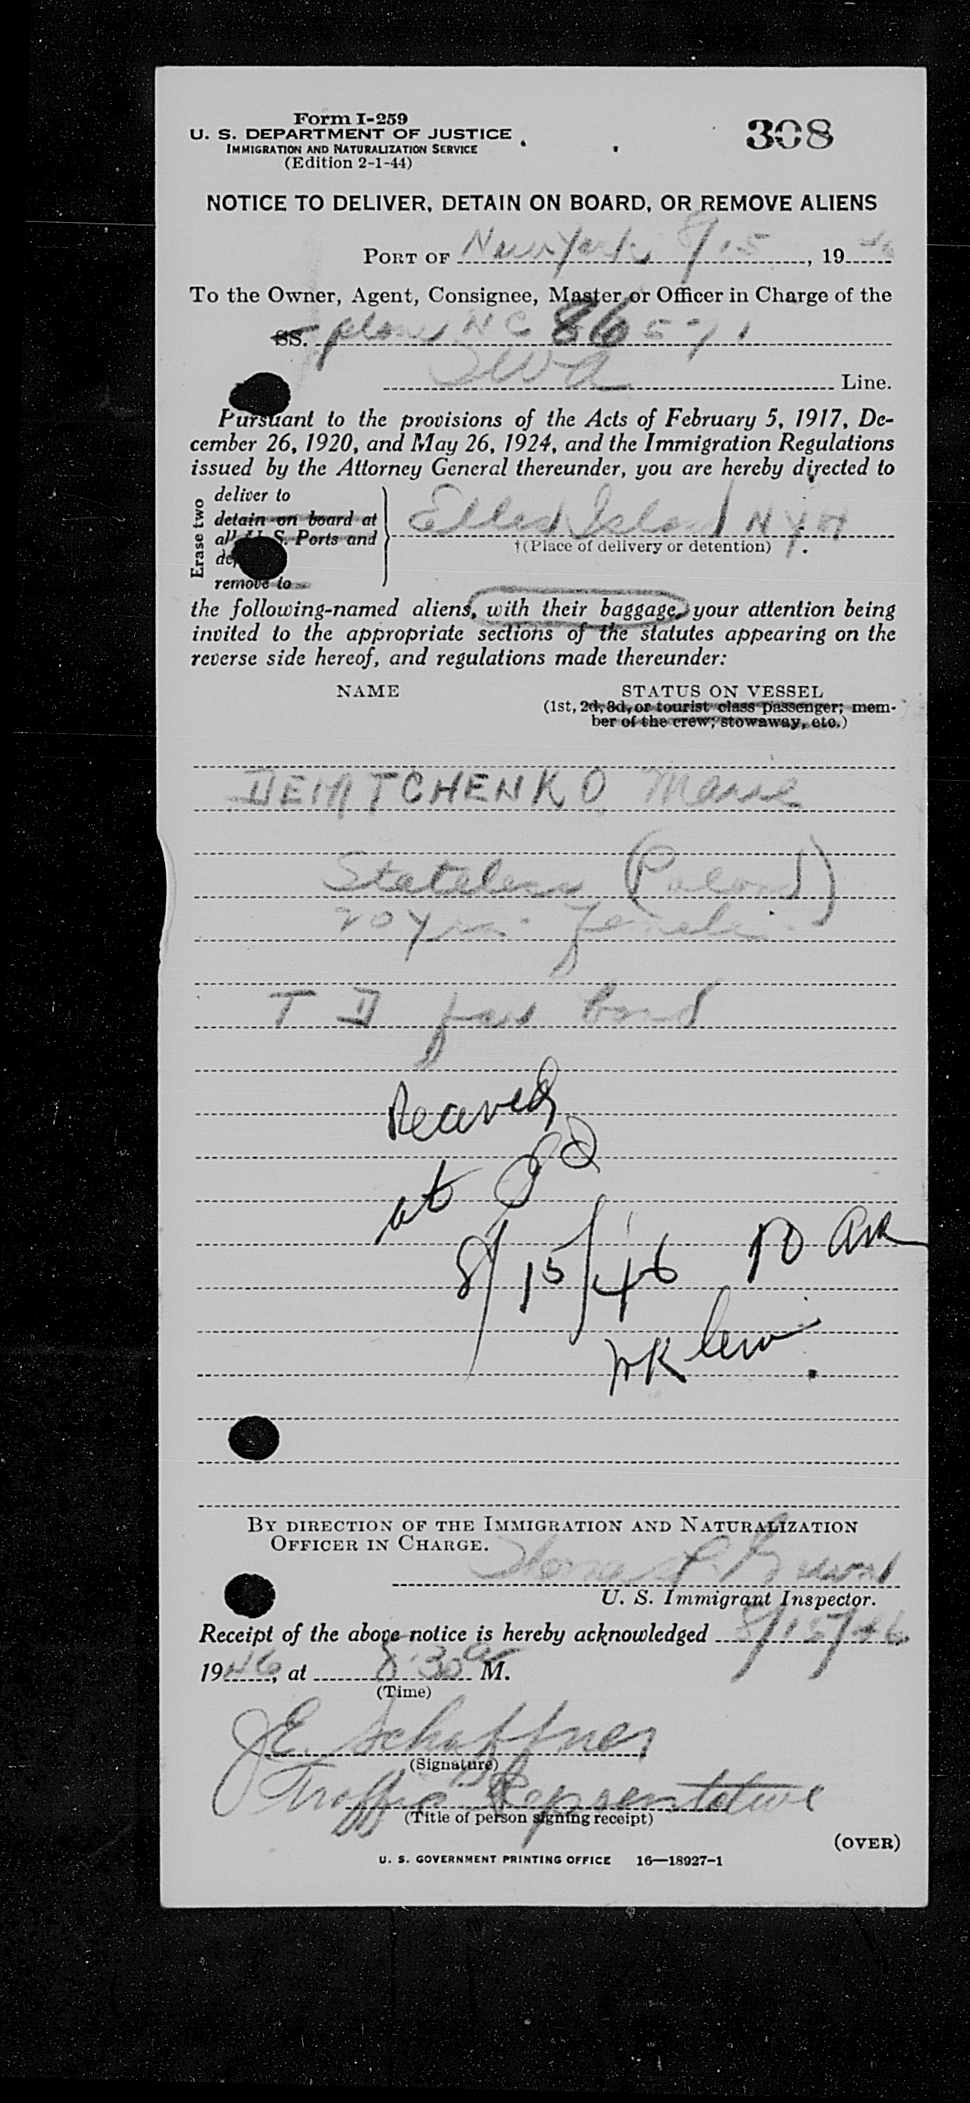 Form I-259
308
U. S. DEPARTMENT OF JUSTICE
IMMIGRATION AND NATURALIZATION SERVICE
(Edition 2-1-44)
NOTICE TO DELIVER, DETAIN ON BOARD, OR REMOVE ALIENS
PORT OF New York 8/15, 1946
To the Owner, Agent, Consignee, Master or Officer in Charge of the
SS. plane NC 86571
TWA Line.
Pursuant to the provisions of the Acts of February 5, 1917, De-
cember 26, 1920, and May 26, 1924, and the Immigration Regulations
issued by the Attorney General thereunder, you are hereby directed to
Erase two
deliver to
detain on board at
all U. S. Ports and
remove to
Ellis Island NYH
†(Place of delivery or detention)
the following-named aliens, with their baggage, your attention being
invited to the appropriate sections of the statutes appearing on the
reverse side hereof, and regulations made thereunder:
NAME STATUS ON VESSEL
(1st, 2d, 3d, or tourist class passenger; mem-
ber of the crew; stowaway, etc.)
DEMTCHENKO Marie
Stateless (Poland)
20 yrs. Female
T D bond
Received
at
8/15/46 10 AM
BY DIRECTION OF THE IMMIGRATION AND NATURALIZATION
OFFICER IN CHARGE.
U. S. Immigrant Inspector.
Receipt of the above notice is hereby acknowledged 8/15/46
1946, at 8:30 a M.
(Time)
J.E. Schaffner
(Signature)
Traffic Representative
(Title of person signing receipt)
(OVER)
U. S. GOVERNMENT PRINTING OFFICE 16—18927-1